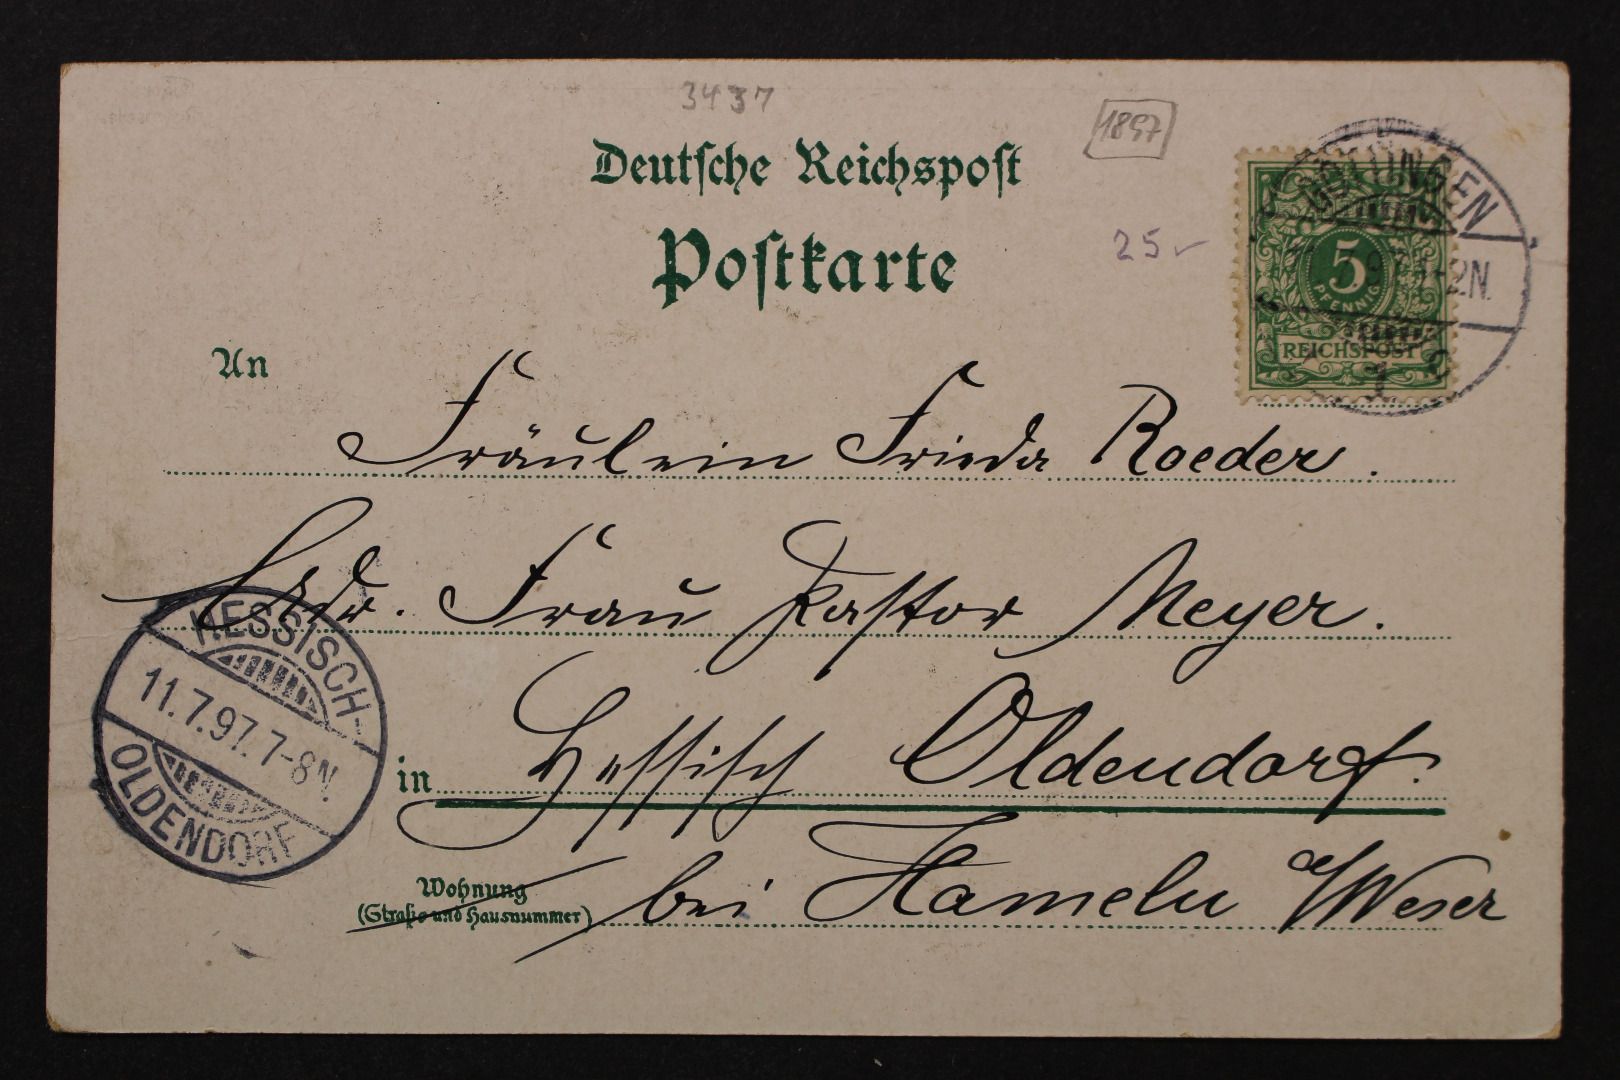 3437
1897
Deutsche Reichspost
Postkarte
25
5
PFENNIG
REICHSPOST
1-2N.
1 c
An
Fräulein Frieda Roeder.
Adr. Frau Pastor Meyer.
in Hessisch Oldendorf.
Wohnung
(Straße und Hausnummer)
bei Hameln a/Weser
HESSISCH-
11.7.97.7-8N.
OLDENDORF